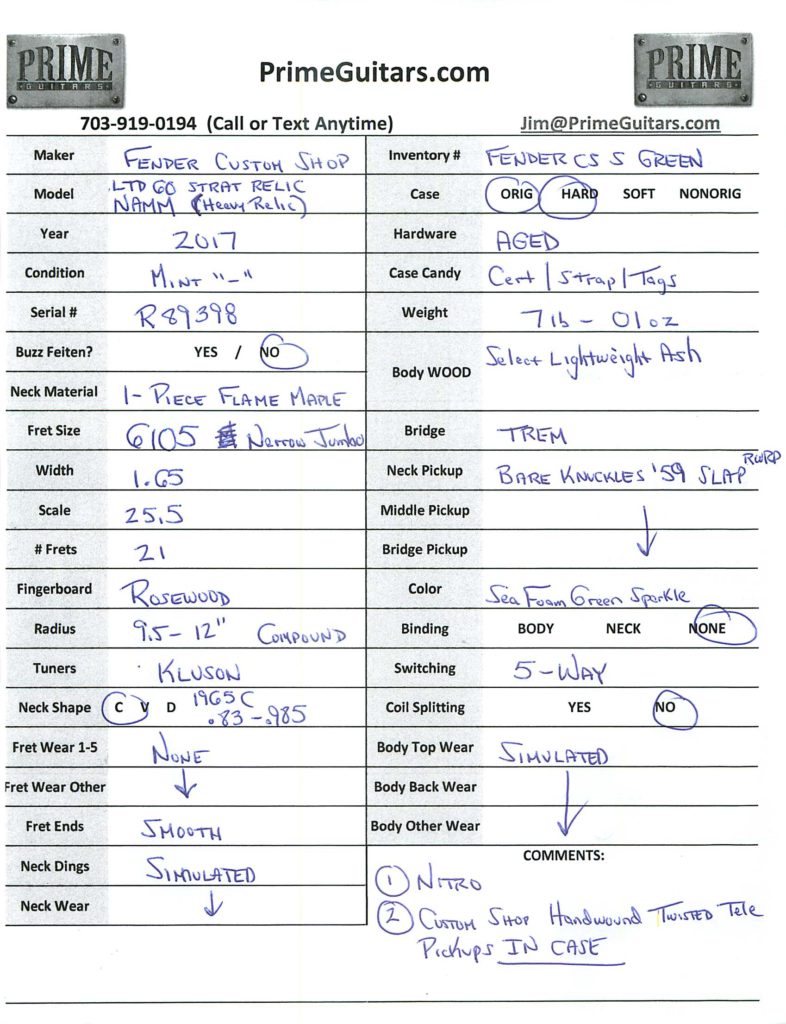 PRIME
GUITARS
PrimeGuitars.com
PRIME
GUITARS
703-919-0194 (Call or Text Anytime)
Jim@PrimeGuitars.com
Maker FENDER CUSTOM SHOP
Model LTD 60 STRAT RELIC
NAMM (Heavy Relic)
Year 2017
Condition MINT "-"
Serial # R89398
Buzz Feiten? YES / NO
Neck Material 1-PIECE FLAME MAPLE
Fret Size 6105 Narrow Jumbo
Width 1.65
Scale 25.5
# Frets 21
Fingerboard ROSEWOOD
Radius 9.5-12" COMPOUND
Tuners KLUSON
Neck Shape C V D 1965 C
.83-.985
Fret Wear 1-5 NONE
Fret Wear Other ↓
Fret Ends SMOOTH
Neck Dings SIMULATED
Neck Wear ↓
Inventory # FENDER CS S GREEN
Case ORIG HARD SOFT NONORIG
Hardware AGED
Case Candy Cert / Strap / Tags
Weight 7 lb - 01 oz
Body WOOD Select Lightweight Ash
Bridge TREM
Neck Pickup BARE KNUCKLES '59 SLAP RWRP
Middle Pickup ↓
Bridge Pickup
Color Sea Foam Green Sparkle
Binding BODY NECK NONE
Switching 5-WAY
Coil Splitting YES NO
Body Top Wear SIMULATED
Body Back Wear ↓
Body Other Wear
COMMENTS:
1 NITRO
2 CUSTOM SHOP Handwound TWISTED Tele
Pickups IN CASE